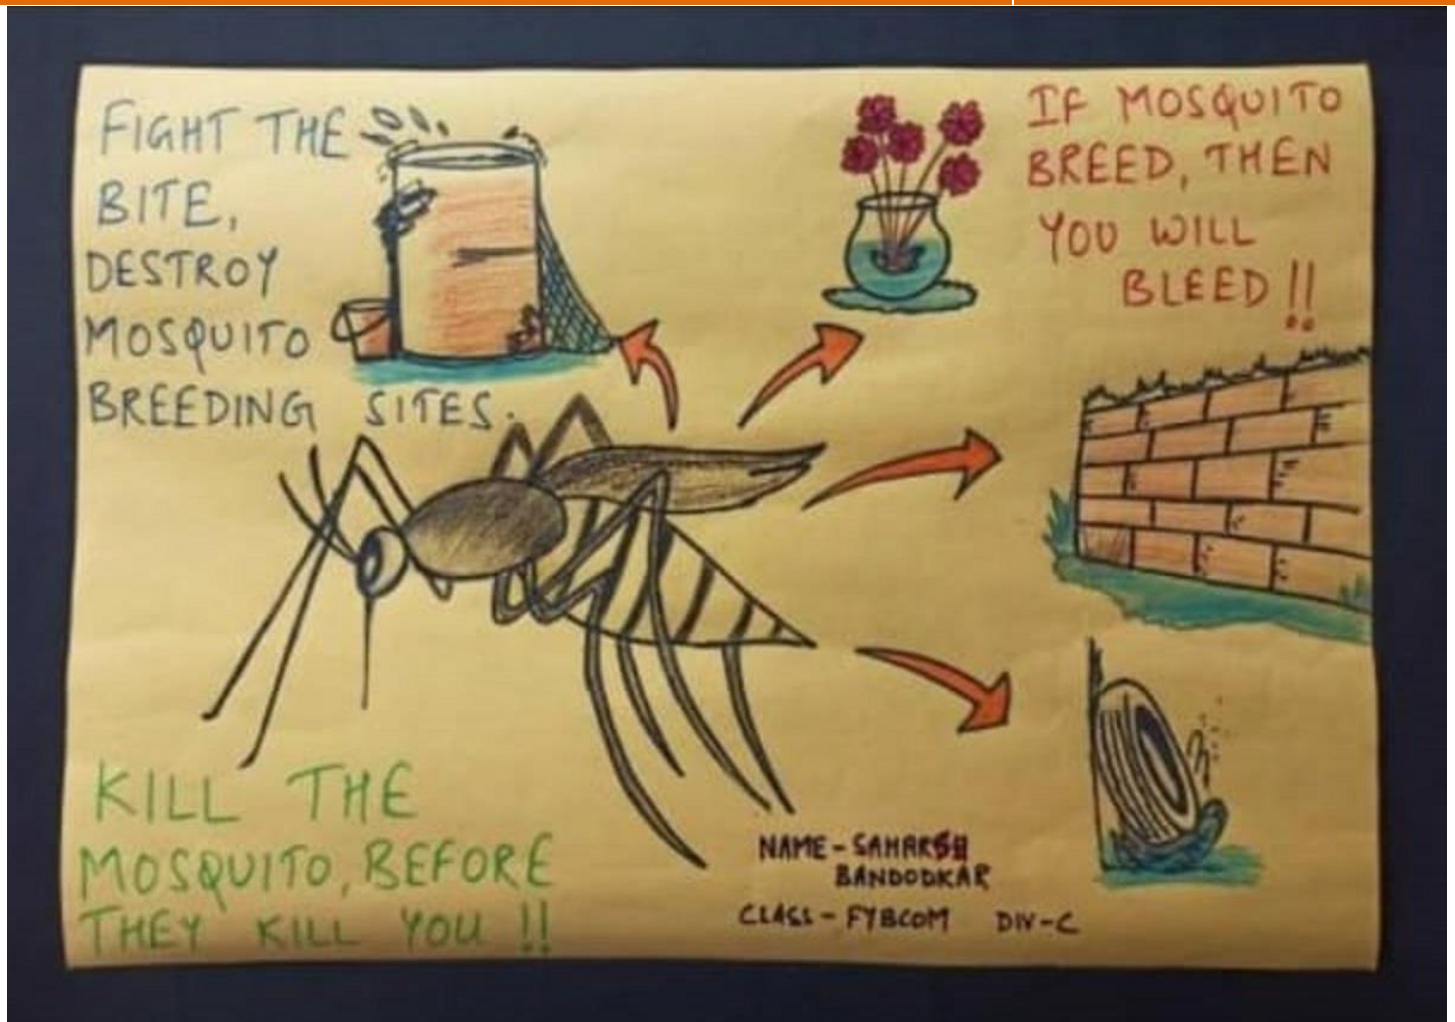 FIGHT THE
BITE,
DESTROY
MOSQUITO
BREEDING SITES.
IF MOSQUITO
BREED, THEN
YOU WILL
BLEED !!
KILL THE
MOSQUITO, BEFORE
THEY KILL YOU !!
NAME - SAHARSH
BANDODKAR
CLASS - FYBCOM DIV - C